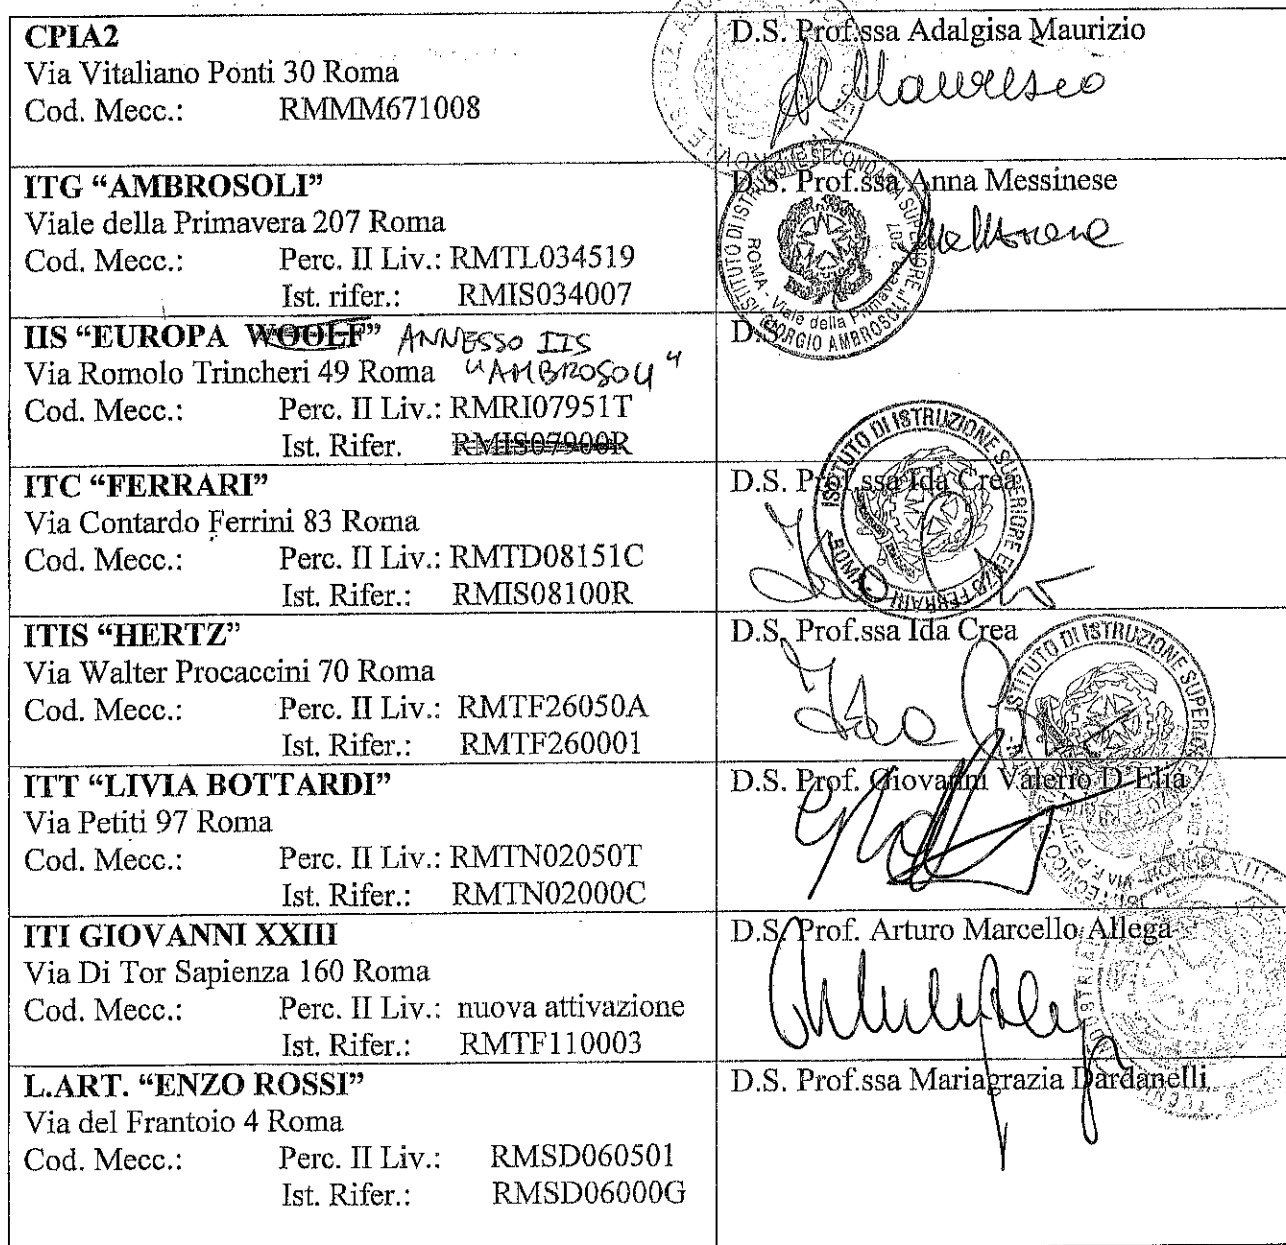 CPIA2
Via Vitaliano Ponti 30 Roma
Cod. Mecc.: RMMM671008
D.S. Prof.ssa Adalgisa Maurizio
ITG “AMBROSOLI”
Viale della Primavera 207 Roma
Cod. Mecc.: Perc. II Liv.: RMTL034519
Ist. rifer.: RMIS034007
D.S. Prof.ssa Anna Messinese
ISTITUTO DI ISTRUZIONE SECONDARIA SUPERIORE
"GIORGIO AMBROSOLI"
ROMA - Viale della Primavera 207
IIS “EUROPA WOOLF” ANNESSO IIS
Via Romolo Trincheri 49 Roma "AMBROSOLI"
Cod. Mecc.: Perc. II Liv.: RMRI07951T
Ist. Rifer. RMIS07900R
D.S.
ITC “FERRARI”
Via Contardo Ferrini 83 Roma
Cod. Mecc.: Perc. II Liv.: RMTD08151C
Ist. Rifer.: RMIS08100R
D.S. Prof.ssa Ida Crea
ISTITUTO DI ISTRUZIONE SUPERIORE ENZO FERRARI
ROMA
ITIS “HERTZ”
Via Walter Procaccini 70 Roma
Cod. Mecc.: Perc. II Liv.: RMTF26050A
Ist. Rifer.: RMTF260001
D.S. Prof.ssa Ida Crea
ISTITUTO DI ISTRUZIONE SUPERIORE
ITT “LIVIA BOTTARDI”
Via Petiti 97 Roma
Cod. Mecc.: Perc. II Liv.: RMTN02050T
Ist. Rifer.: RMTN02000C
D.S. Prof. Giovanni Valerio D’Elia
ITI GIOVANNI XXIII
Via Di Tor Sapienza 160 Roma
Cod. Mecc.: Perc. II Liv.: nuova attivazione
Ist. Rifer.: RMTF110003
D.S. Prof. Arturo Marcello Allega
L.ART. “ENZO ROSSI”
Via del Frantoio 4 Roma
Cod. Mecc.: Perc. II Liv.: RMSD060501
Ist. Rifer.: RMSD06000G
D.S. Prof.ssa Mariagrazia Dardanelli